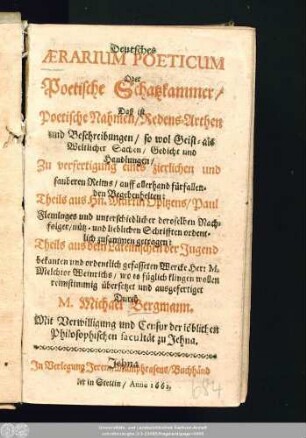 Deutsches
ÆRARIUM POETICUM
Oder
Poetische Schatzkammer/
Daß ist
Poetische Nahmen/Redens-Arthen
und Beschreibungen/ so wol Geist- als
Weltlicher Sachen/ Gedicht und
Handlungen/
Zu verfertigung eines zierlichen und
sauberen Reims/ auff allerhand fürfallen-
den Begebenheiten:
Theils aus Hn. Martin Opitzens/ Paul
Fleminges und unterschiedlicher deroselben Nach-
folger/ nütz- und lieblichen Schrifften ordent-
lich zusammen getragen;
Theils aus dem Lateinischen der Jugend
bekanten und ordentlich gefasseten Wercke Herr M.
Melchior Weinrichs/ wo es füglich klingen wollen
reimstimmig übersetzet und ausgefertiget
Durch
M. Michael Bergmann.
Mit Verwilligung und Censur der löblichen
Philosophischen facultät zu Jehna.
Jehna
In Verlegung Jerem. Mamphrasens/ Buchhänd
ler in Stettin/ Anno
684